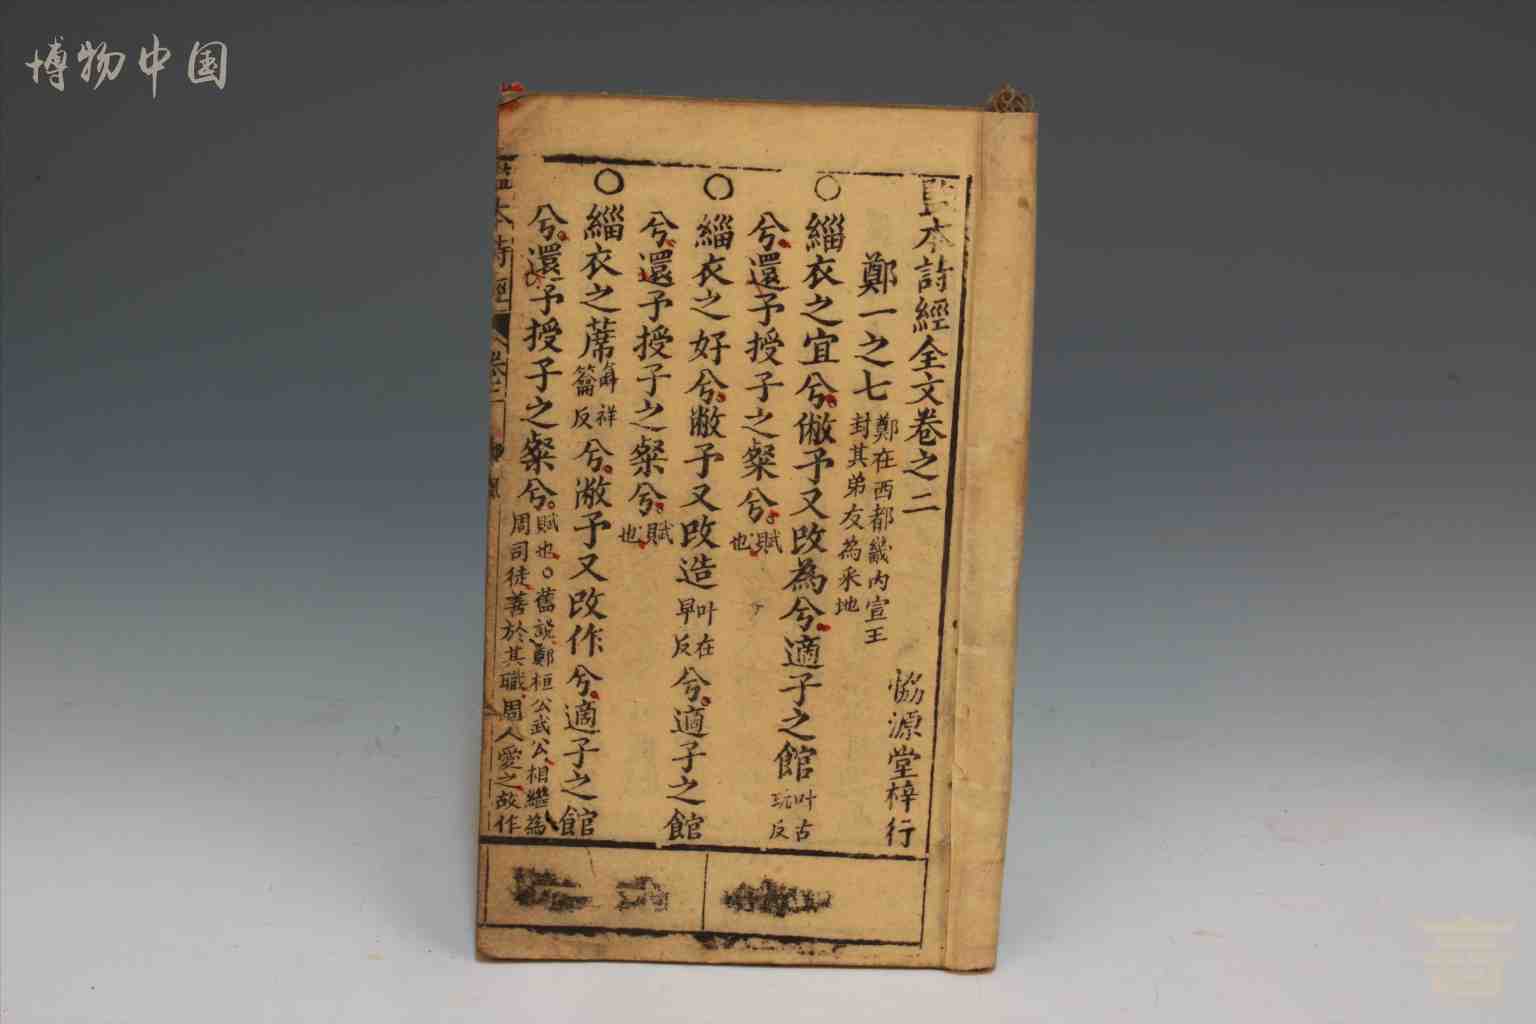 博物中国
監本詩經全文卷之二
協源堂梓行
鄭一之七 鄭在西都畿內宣王封其弟友為采地
○緇衣之宜兮敝予又改為兮適子之館 叶古玩反
兮還予授子之粲兮 賦也
○緇衣之好兮敝予又改造 叶在早反 兮適子之館
兮還予授子之粲兮 賦也
○緇衣之蓆 祥籥反 兮敝予又改作兮適子之館
兮還予授子之粲兮 賦也○舊說鄭桓公武公相繼為周司徒善於其職周人愛之故作
監本詩經 卷二